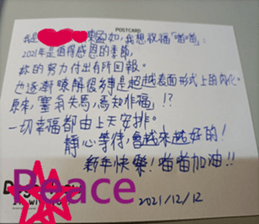 POSTCARD
我是 如,我想祝福「喵喵」:
2021年是值得感恩的季節,
妳的努力付出有所回報。
也逐漸瞭解很多事是超越表面形式上的
原來「塞翁失馬,焉知非福」!?
一切幸福都由上天安排。
靜心等待,會越來越好的!
新年快樂!喵喵加油!!
Peace
2021/12/12